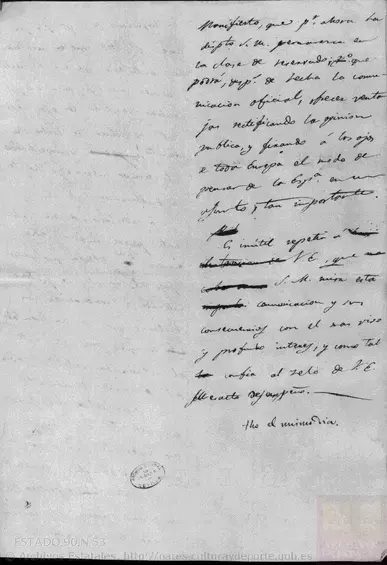 Manifiesto, que pr. ahora ha
dispto S. M. permanezca en
la clase de reservado, pero que
podrá, desps. de hecha la comu-
nicacion oficial, ofrecer venta-
jas rectificando la opinion
publica, y fixando á los ojos
de toda Europa el modo de
pensar de la Espa. en un
asunto tan importante.
Es inútil repetir a
V. E. que
S. M. mira esta
comunicacion y sus
consecuencias con el mas vivo
y profundo interes, y como tal
confia al zelo de V. E.
exacto desempeño.
fho el mismo dia.
ESTADO,90,N.53
Archivos Estatales, http://pares.culturaydeporte.gob.es